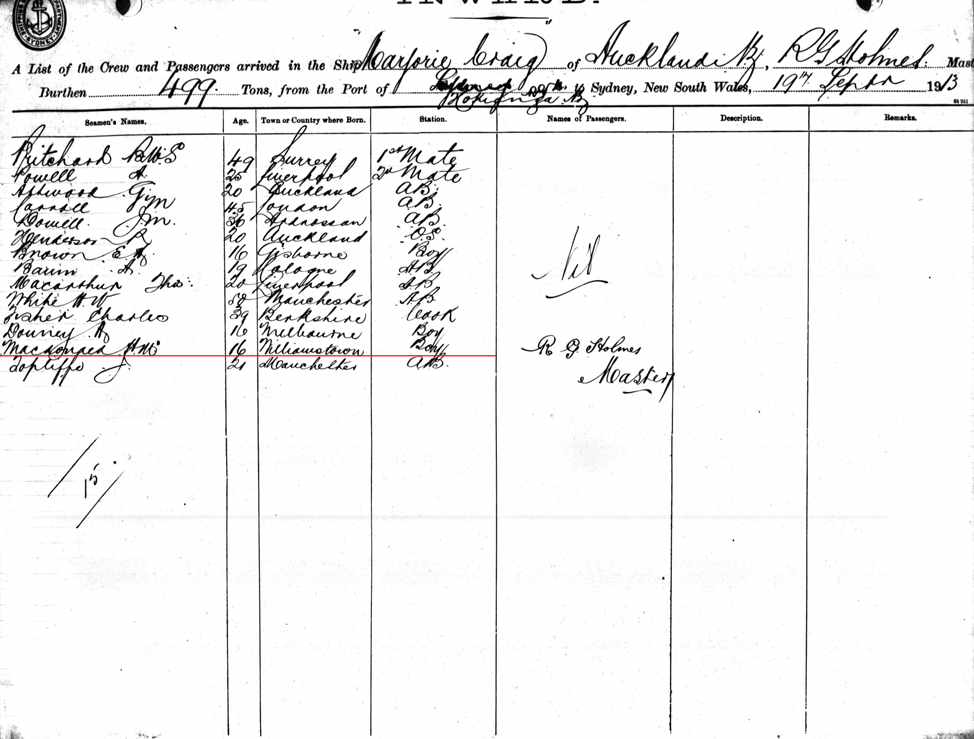 INWARD.
SHIPPING DEPARTMENT SYDNEY
A List of the Crew and Passengers arrived in the Ship "Marjorie Craig" of Auckland N.Z, R G Holmes. Mast
Burthen 499. Tons, from the Port of Hokianga N.Z to Sydney, New South Wales, 19th Septr 1913
Seamen's Names. Age. Town or Country where Born. Station. Names of Passengers. Description. Remarks.
Pritchard 49 Surrey 1st Mate
Powell A. 25 Liverpool 2nd Mate
Attwood 20 Auckland AB.
Carroll 45 London AB.
Dowell. 36 Ardrossan AB.
Henderson R 20 Auckland O.S.
Brown 16 Gisborne Boy
Nil
Barim A. 19 Cologne AB
Macarthur Thos: 20 Liverpool AB
White H W Manchester AB
Fisher Charles 39 Berkshire Cook
Downey 16 Melbourne Boy
Macdonald 16 Williamstown Boy
R G Holmes
Topliffe J 21 Manchester AB.
Master
15